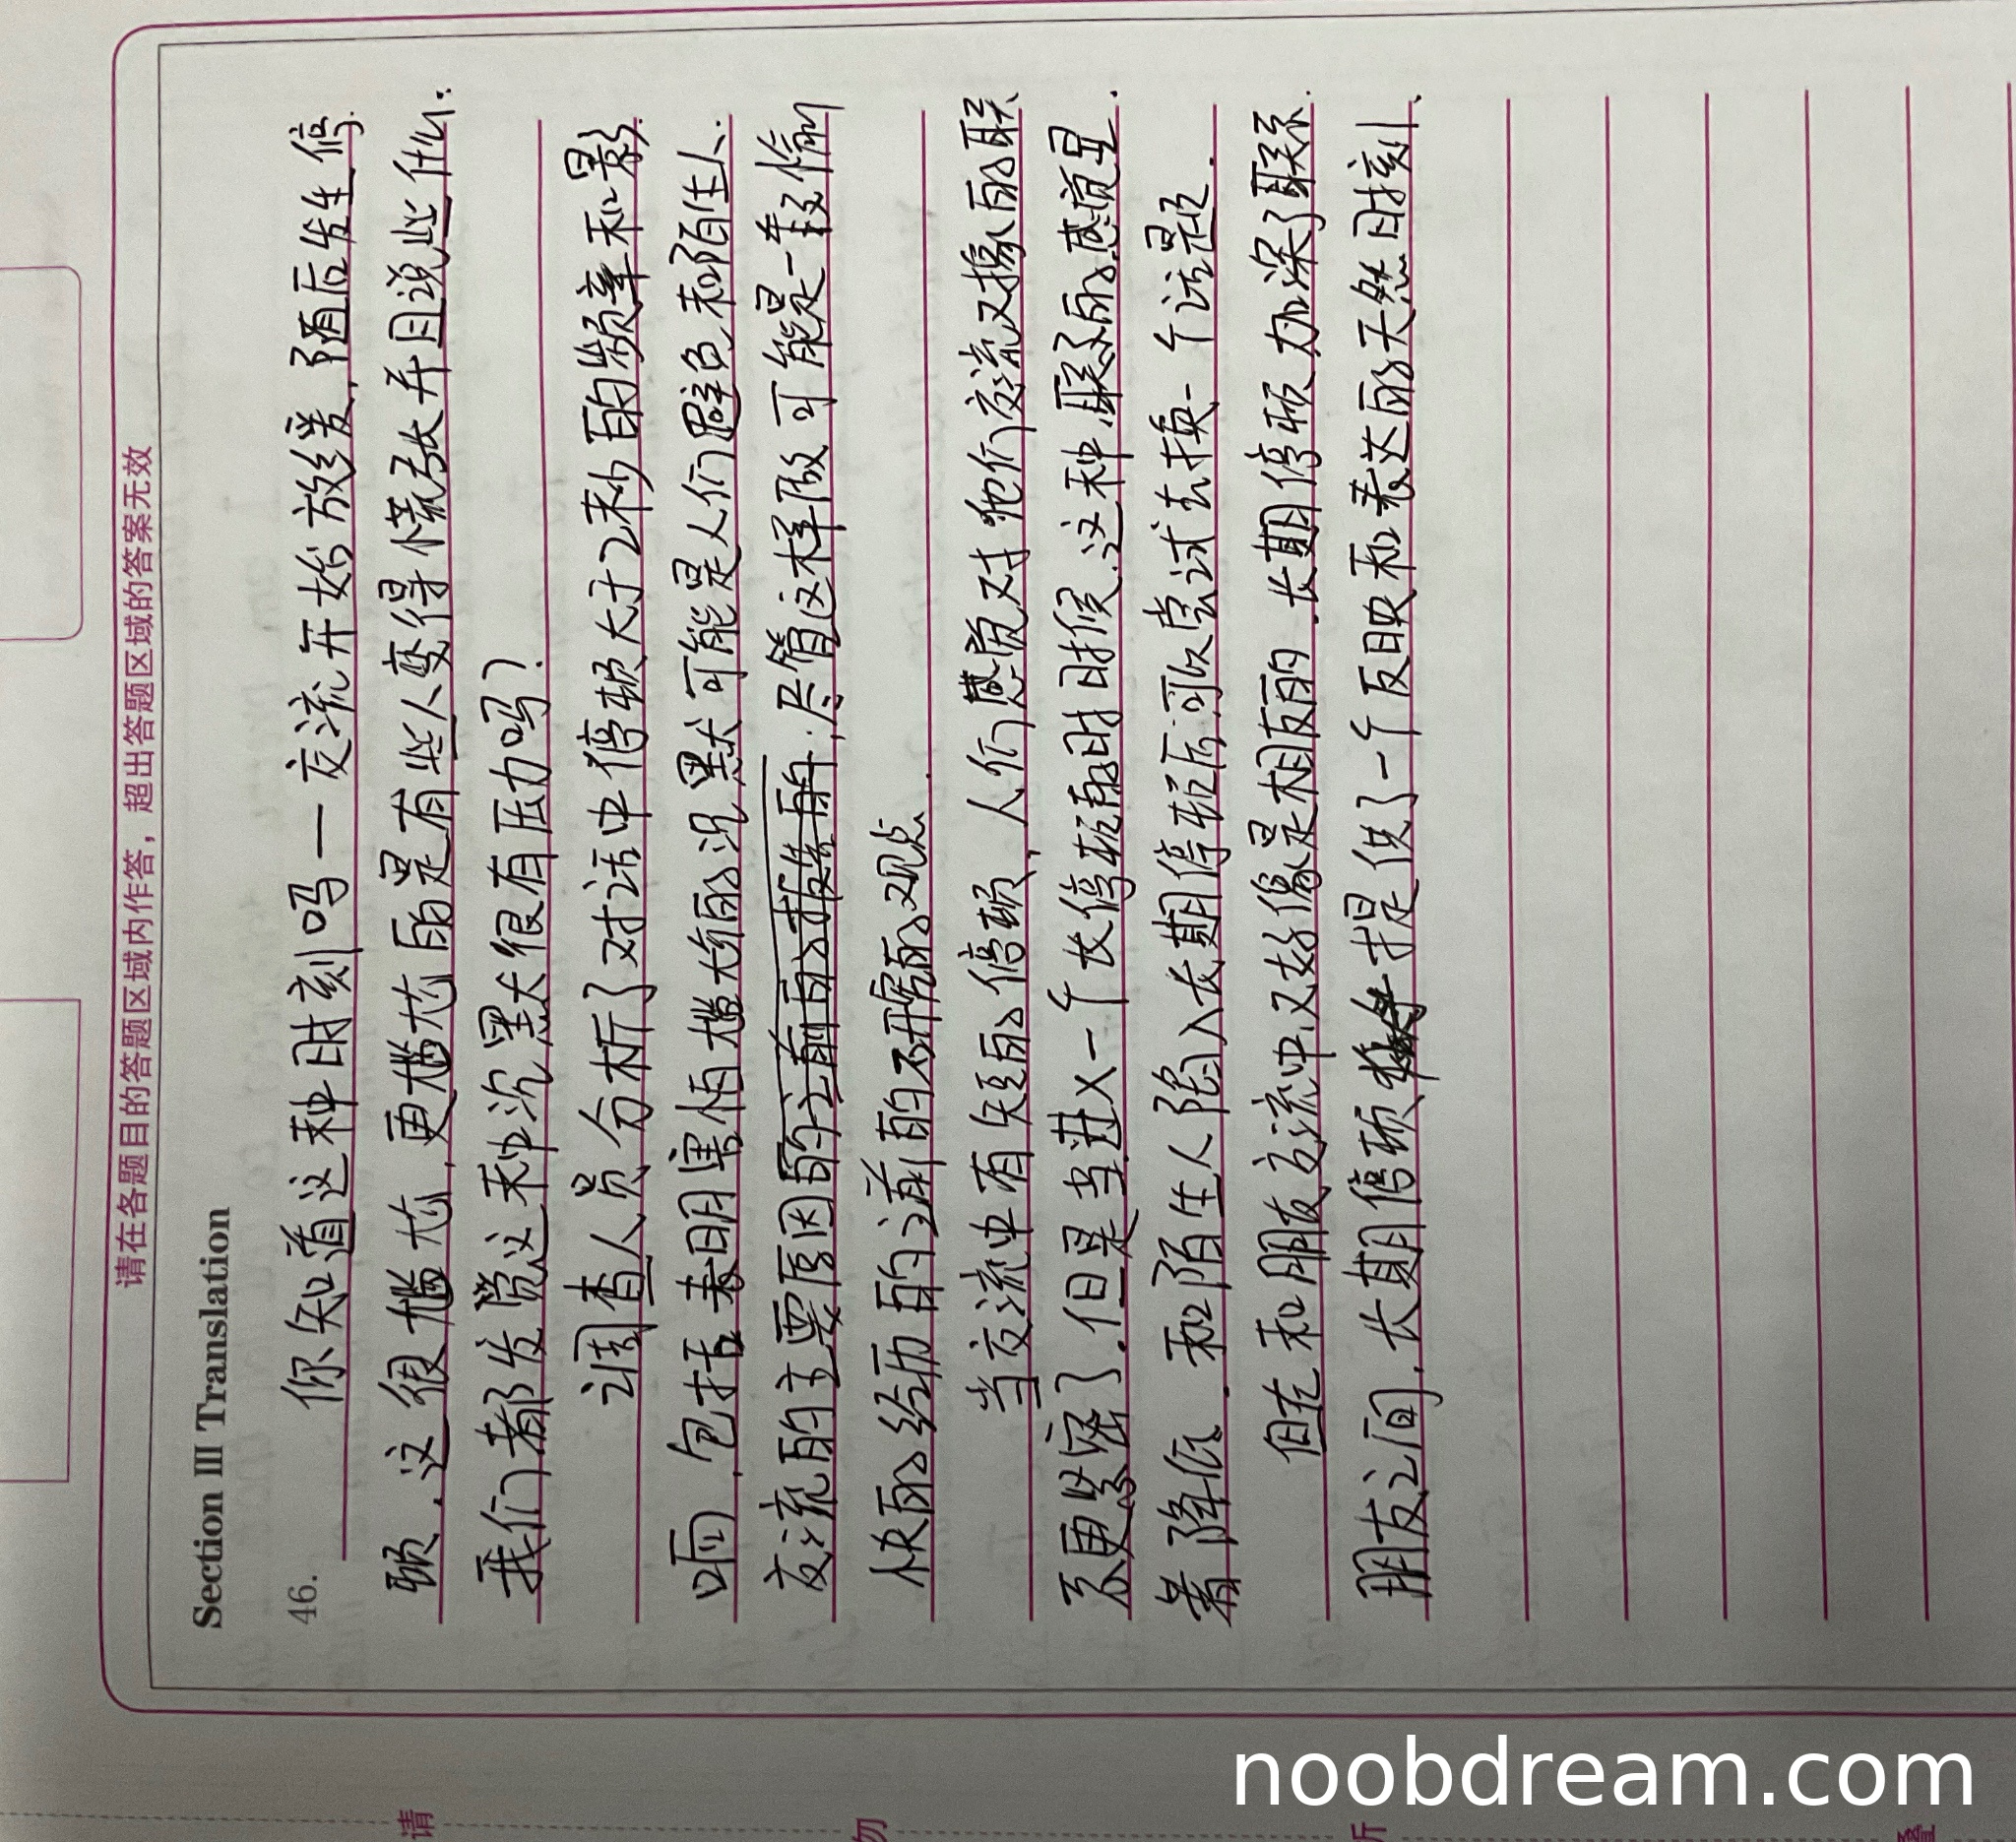 请在各题目的答题区域内作答，超出答题区域的答案无效
Section III Translation
46.
你知道这种时刻吗—交流开始放缓,随后发生停
顿.这很尴尬,更尴尬的是有些人变得慌张并且说些什么.
我们都发觉这种沉默很有压力吗?
调查人员分析了对话中停顿大于2秒的频率和影
响,包括表明害怕尴尬的沉默可能是人们避免和陌生人
交流的主要原因.尽管这样做可能是一段愉
快的经历的之前的不研究的观点.
当交流中有短的停顿,人们感觉对他们交流对象的联
系更紧密了.但是当进入一个长停顿的时候,这种联系的感觉显
着降低.和陌生人陷入长期停顿后,可以尝试去换一个话题.
但在和朋友交流中又好像是相反的.长期停顿加深了联系.
朋友之间,长期停顿提供了一个反映和表达的天然时刻.
请
勿
折
叠
noobdream.com